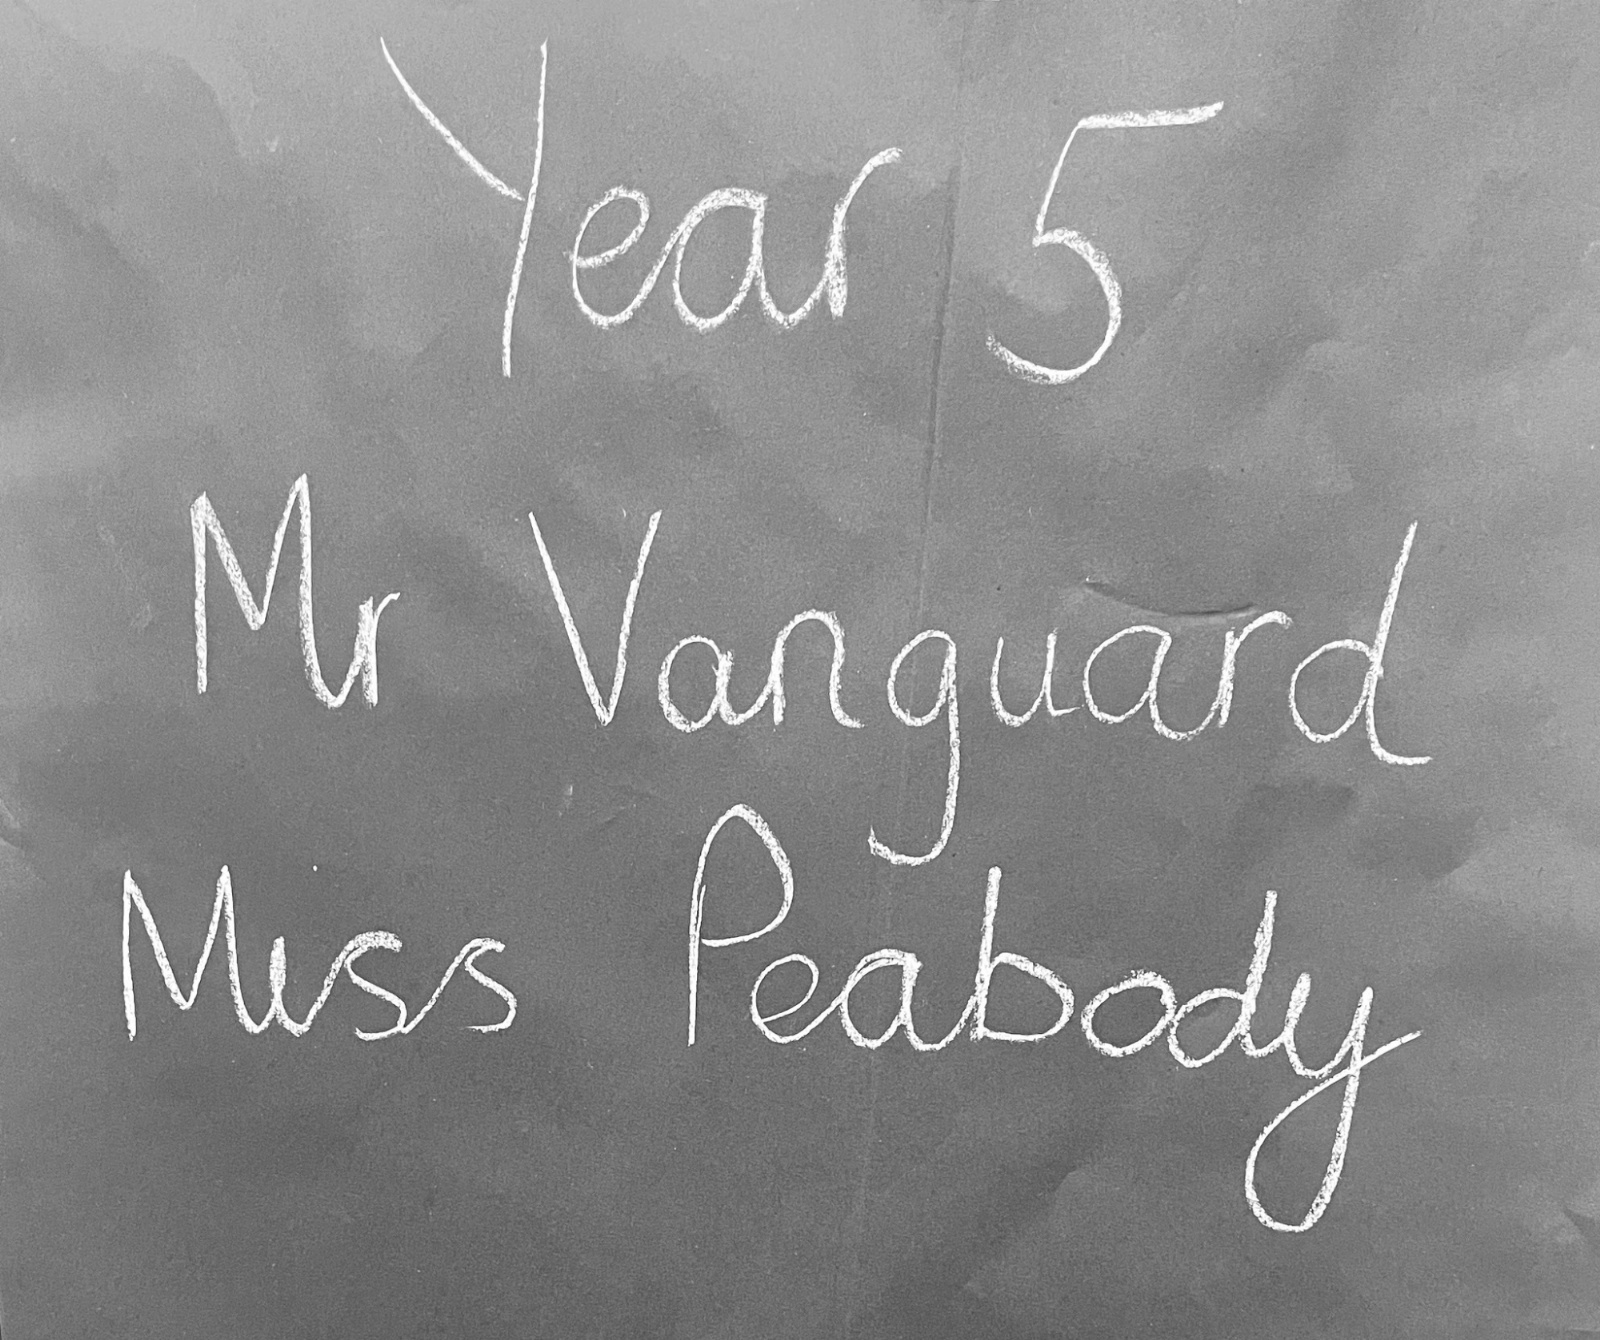 Year 5
Mr Vanguard
Miss Peabody